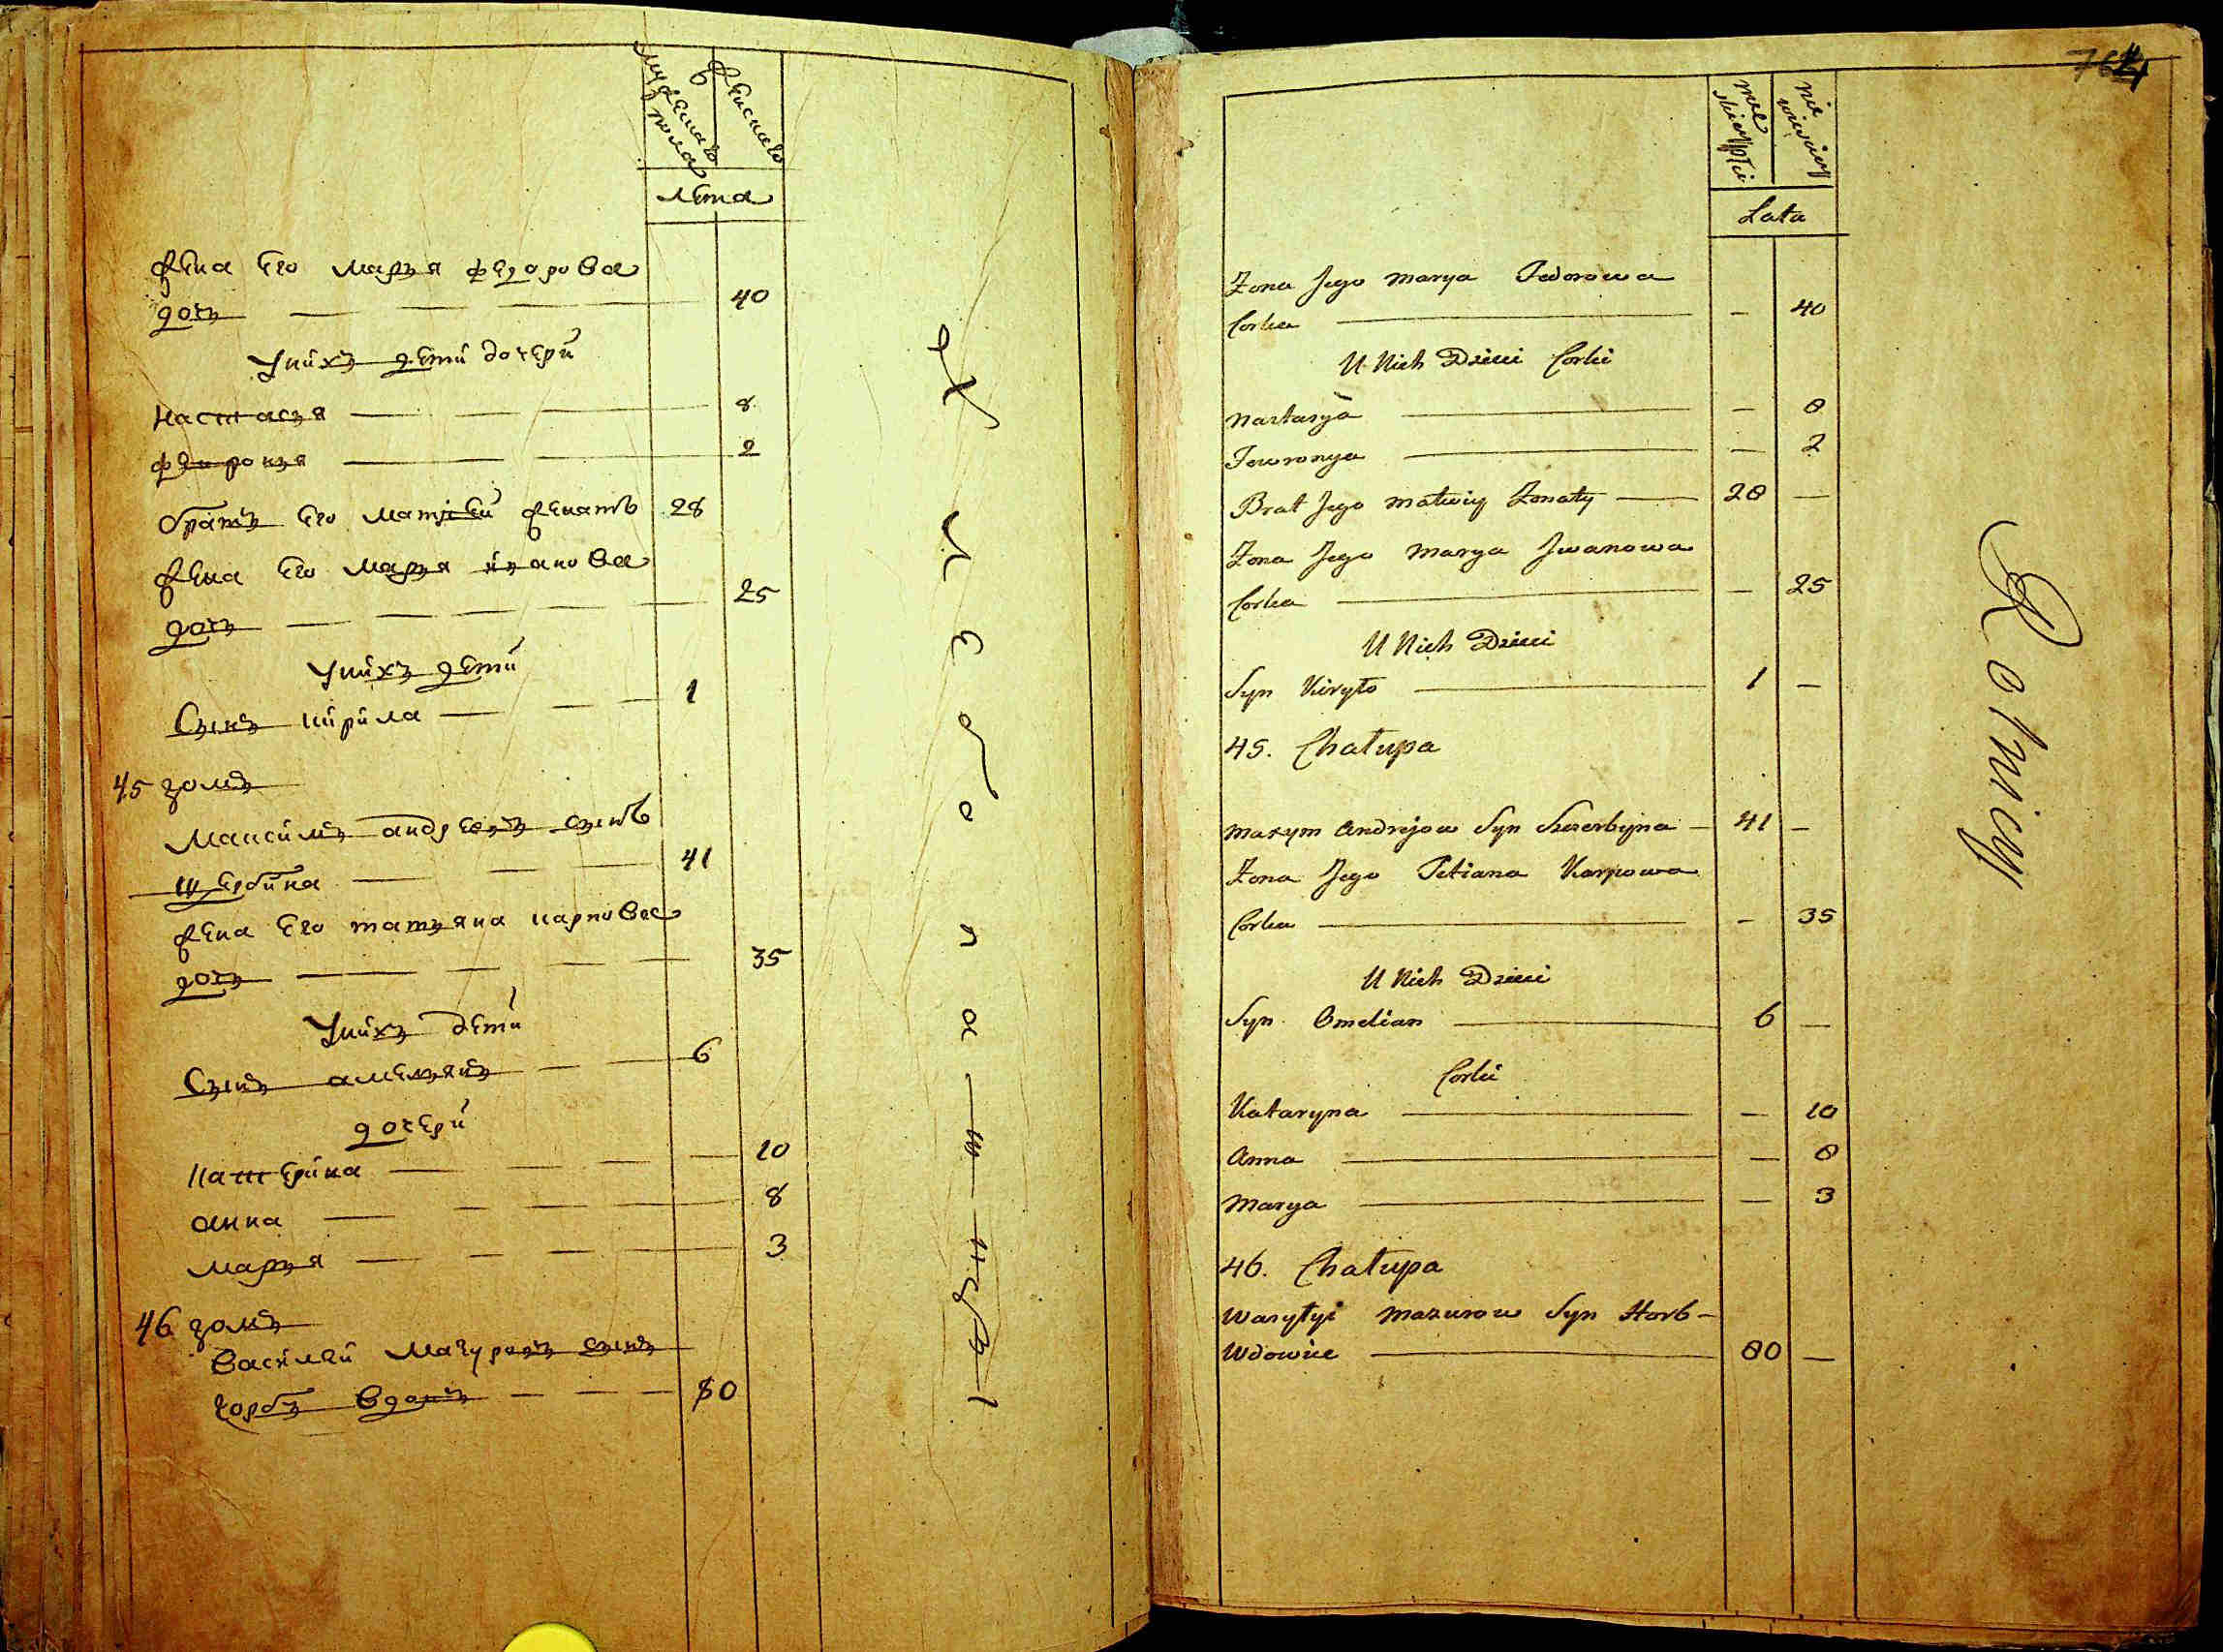 мужеска пола
женска
Лета
жена его Марья федорова
дочь 40
У них дети дочери
настасья 8
февронья 2
братъ его Матвей женатъ 28
жена его Марья иванова
дочь 25
У них дети
Сынъ кирила 1
45 домъ
Максимъ андреевъ сынъ
щербина 41
жена его татьяна карпова
дочь 35
У них дети
Сынъ амельянъ 6
дочери
Катерина 10
анна 8
Марья 3
46 домъ
Василей Мазуровъ сынъ
горбъ вдовъ 80
męskiey płci
niewieściey
Lata
Żona Jego Marya Fedorowa
Corka — 40
U Nich Dzieci Corki
Nastasya — 8
Fewronya — 2
Brat Jego Matwiy Żonaty 28 —
Żona Jego Marya Jwanowa
Corka — 25
U Nich Dzieci
Syn Kiryło 1 —
45. Chałupa
Maxym Andrejow Syn Szczerbyna 41 —
Żona Jego Tetiana Karpowa
Corka — 35
U Nich Dzieci
Syn Omelian 6 —
Corki
Kataryna — 10
Anna — 8
Marya — 3
46. Chałupa
Wasylyi Mazurow Syn Horb –
Wdowiec 80 —
Rolnicy